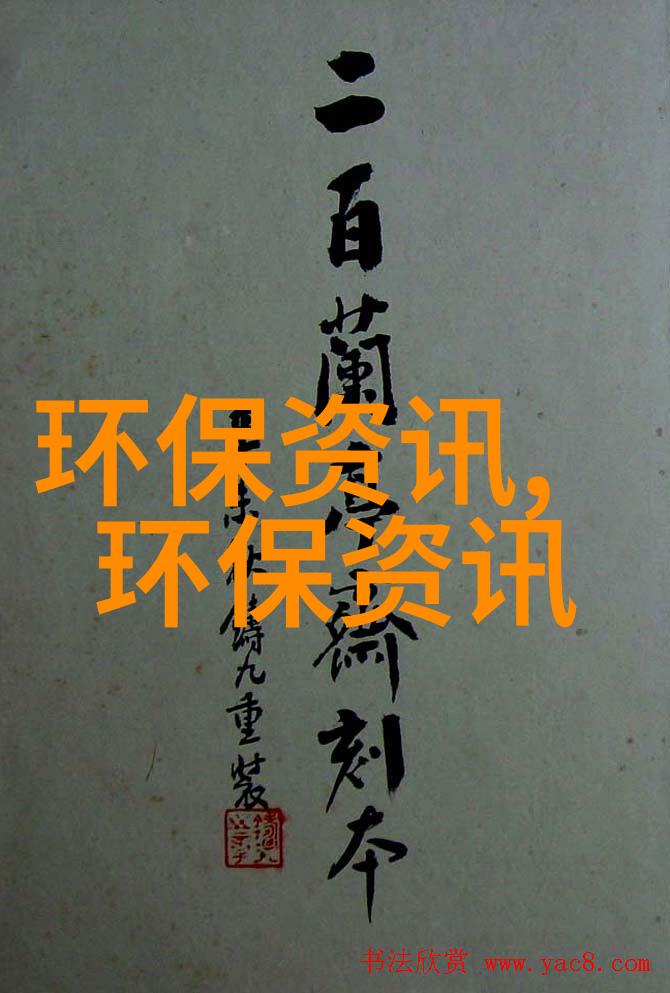 二百蘭亭齋刻本
未秋鑄九重裝
环保资讯,
环保资讯
书法欣赏 www.yac8.com